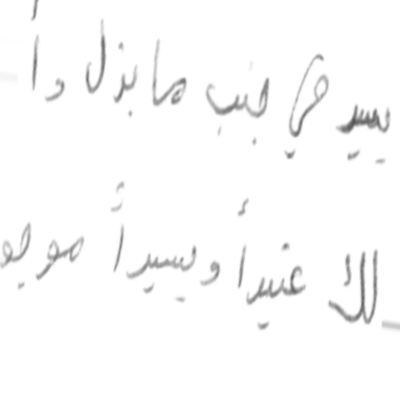 يسير في جنب ما بذل وأ
لك عنيداً ويسيراً موجو